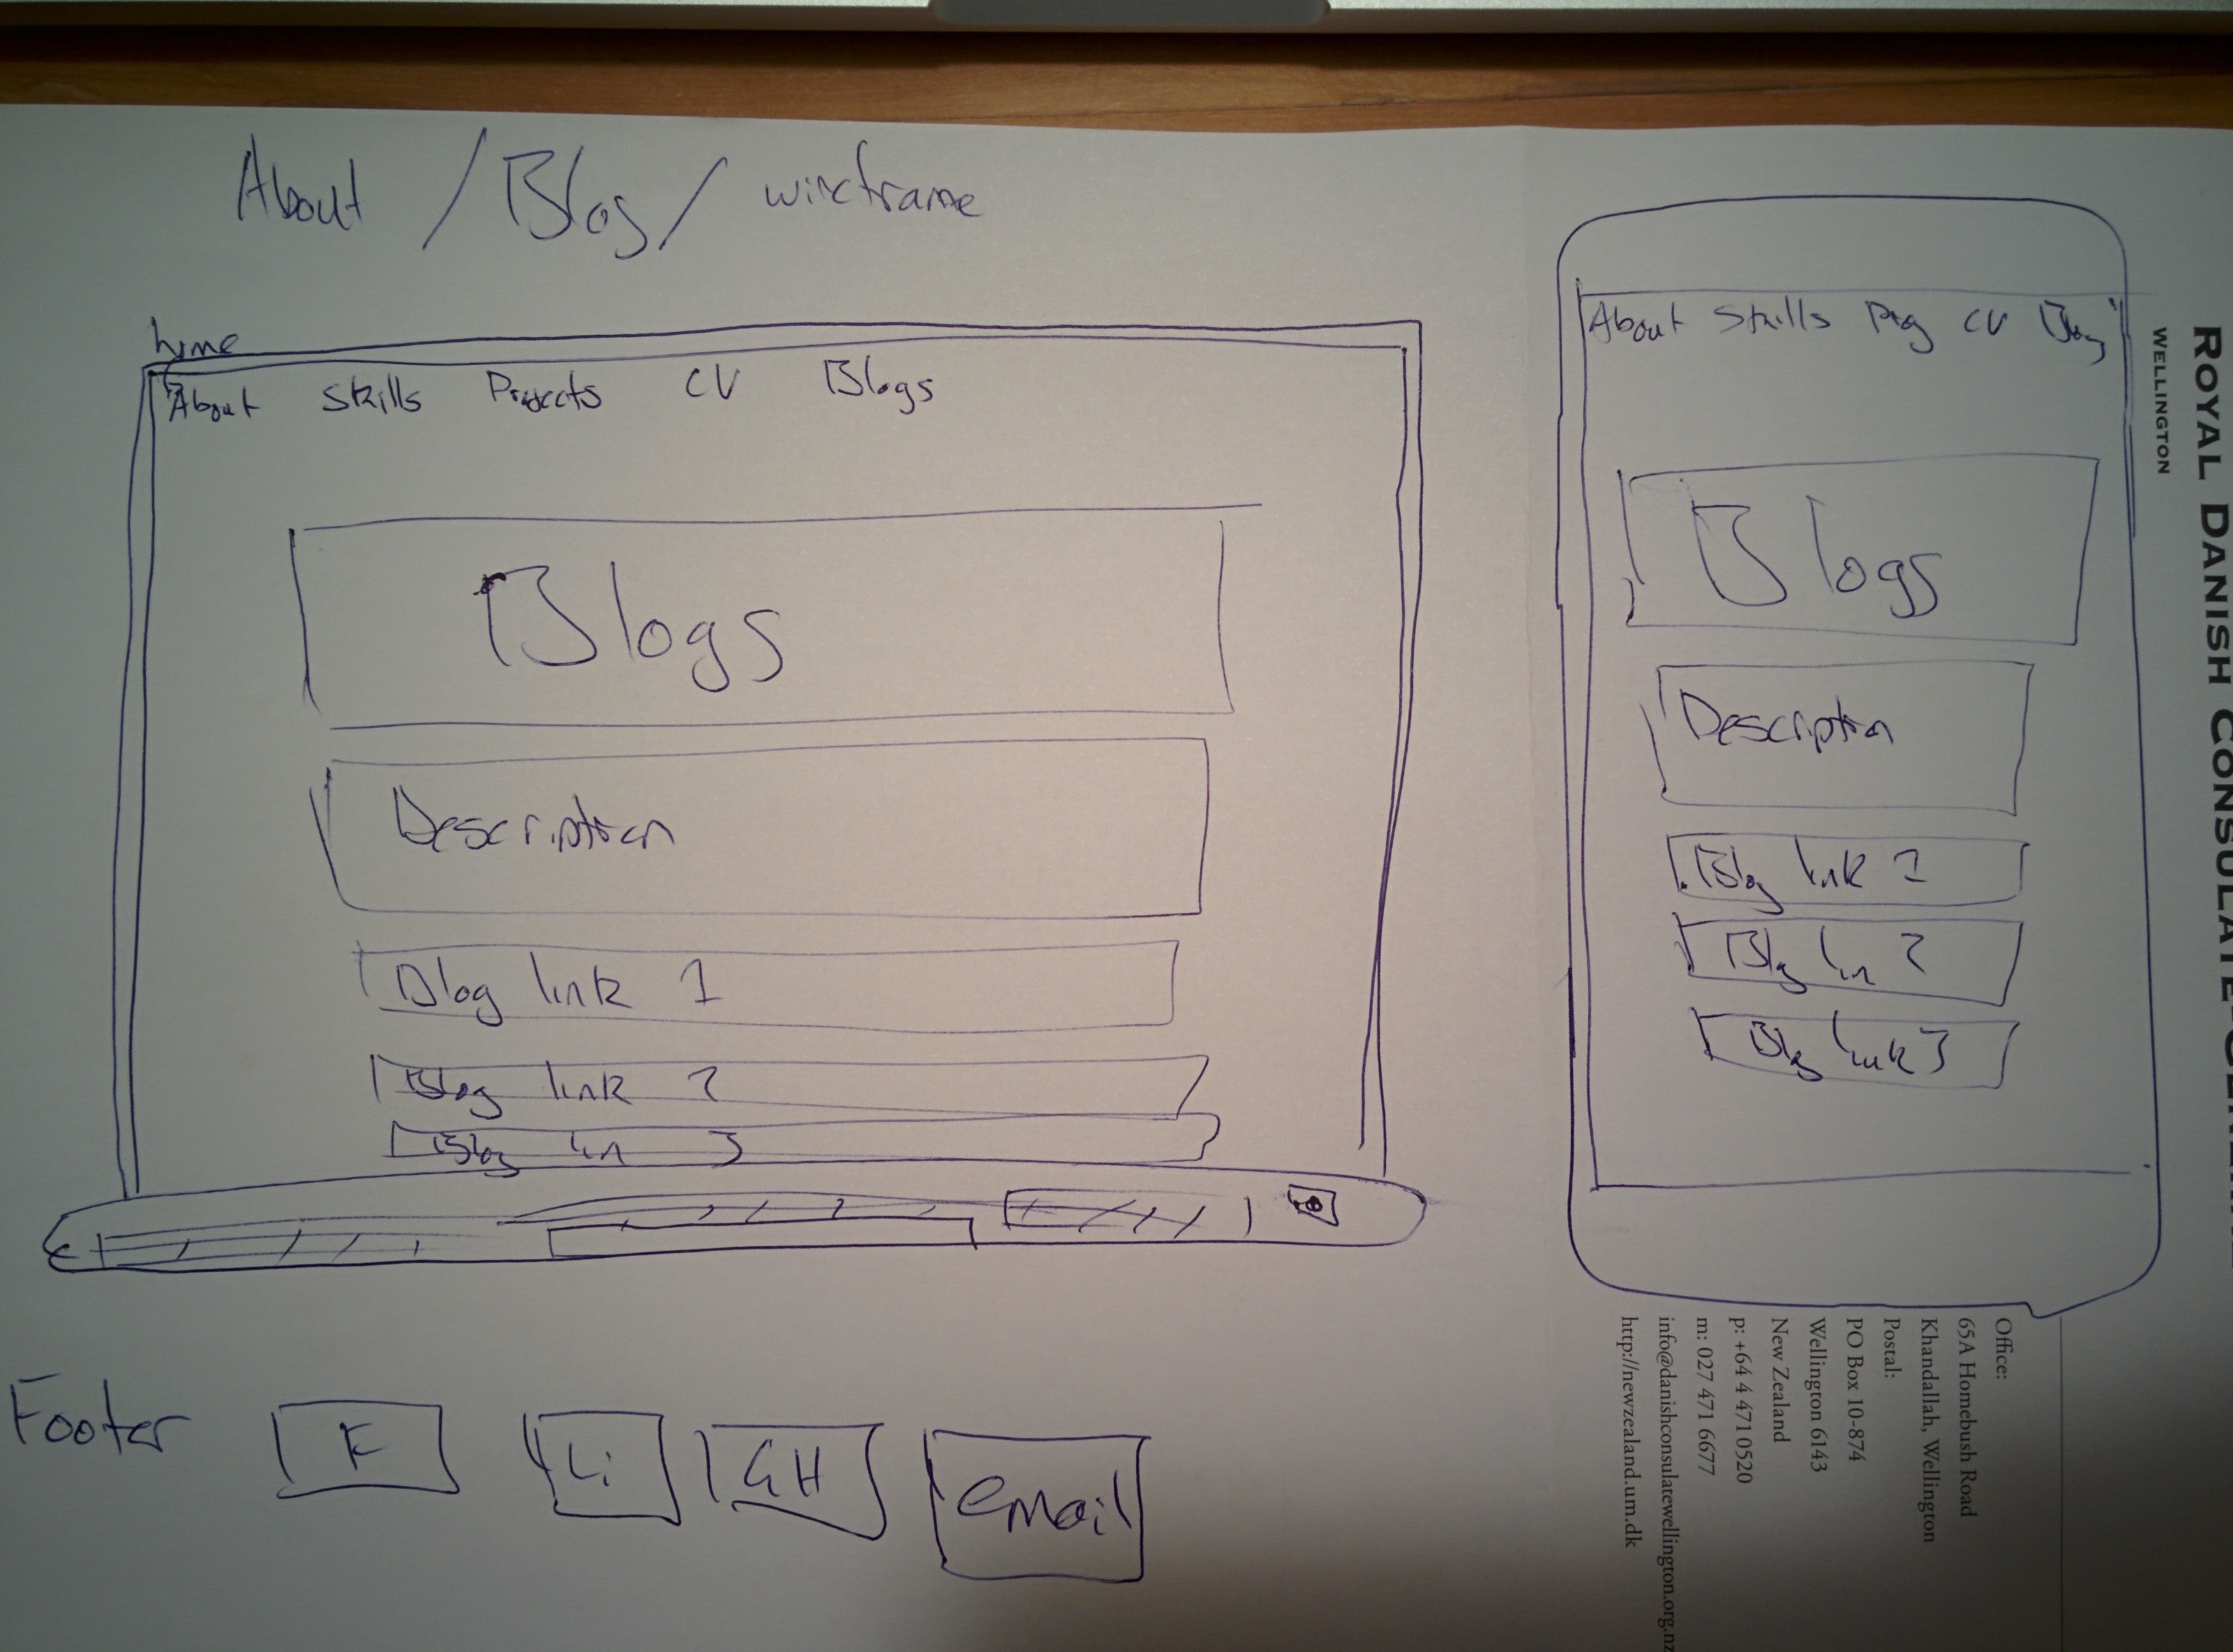 About / Blog / wireframe
home
About Skills Projects CV Blogs
Blogs
Description
Blog link 1
Blog link 2
Blog lin 3
About Skills Proj CV Blog
Blogs
Description
Blog link 1
Blog lin 2
Blog link 3
Footer F Li GH email
ROYAL DANISH CONSULATE
WELLINGTON
Office:
65A Homebush Road
Khandallah, Wellington
Postal:
PO Box 10-874
Wellington 6143
New Zealand
p: +64 4 471 0520
m: 027 471 6677
info@danishconsulatewellington.org.nz
http://newzealand.um.dk